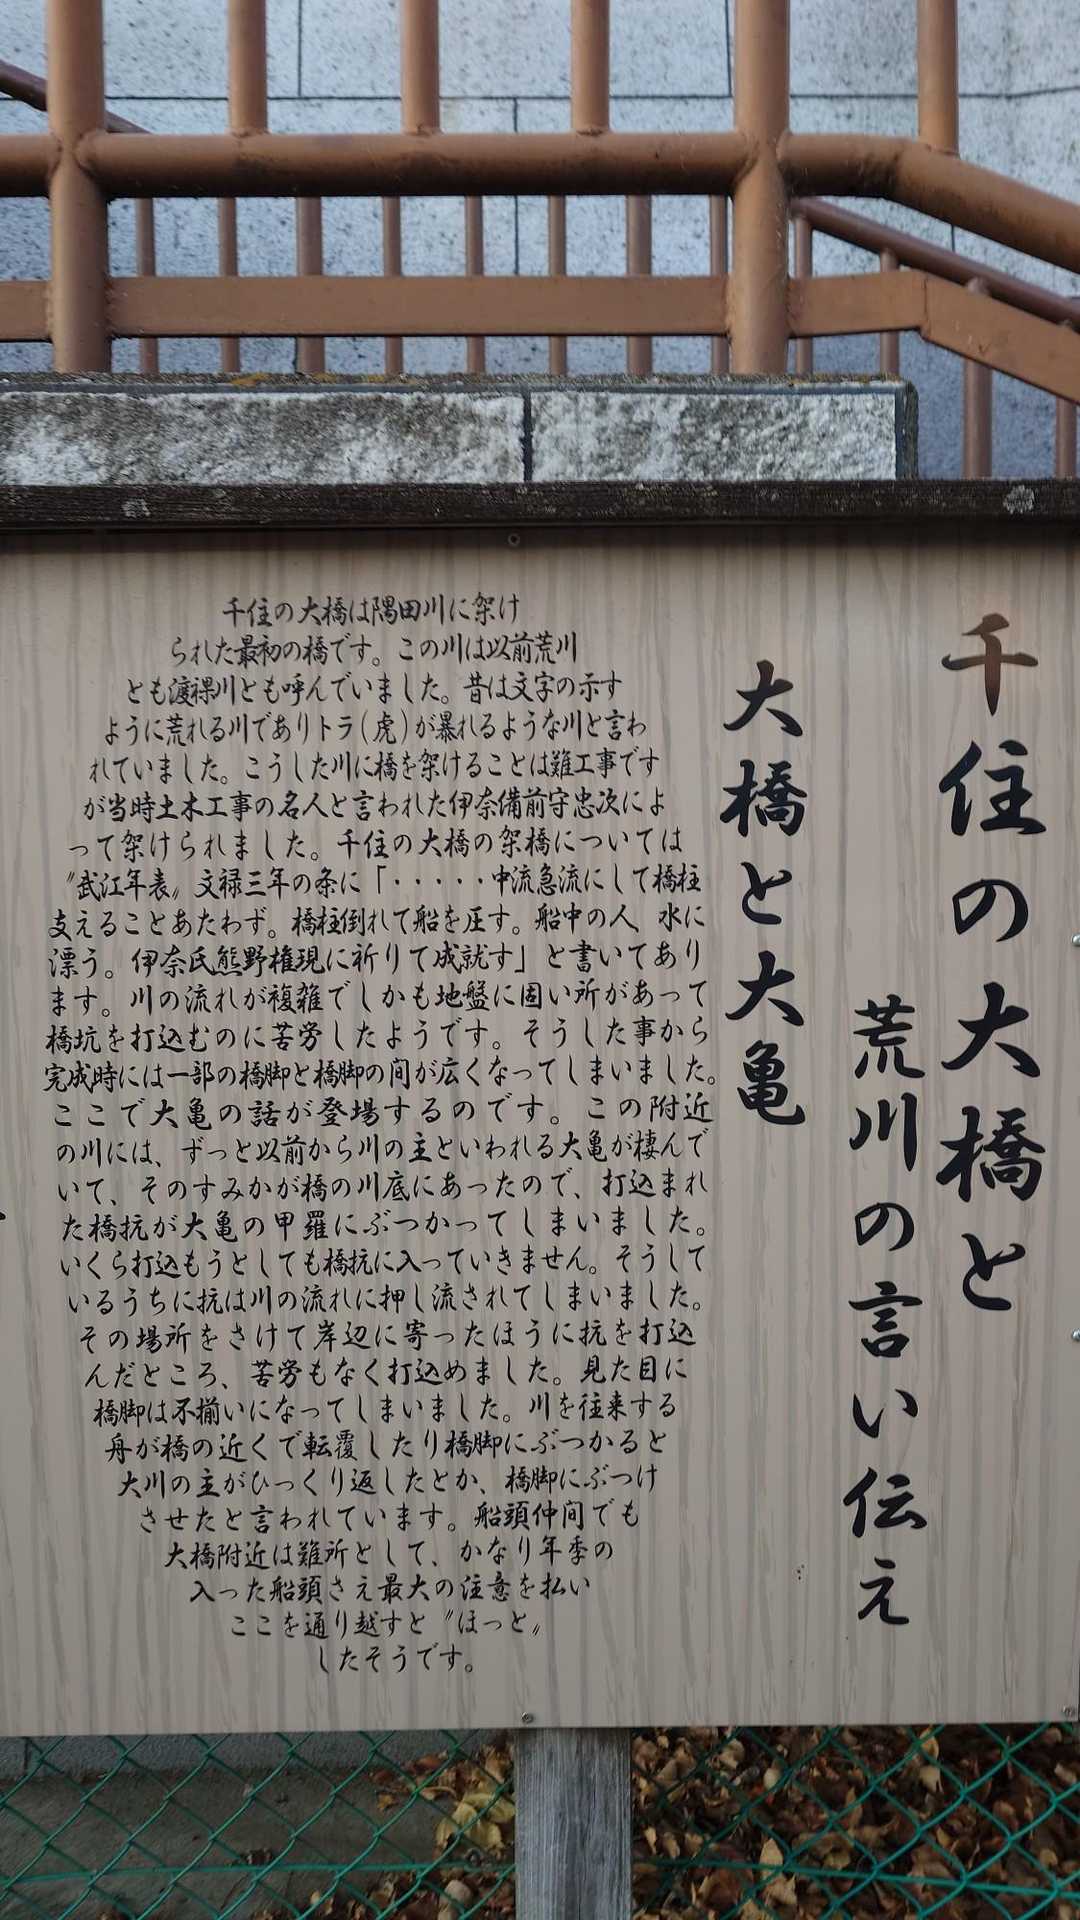 千住の大橋と
荒川の言い伝え
大橋と大亀
千住の大橋は隅田川に架け
られた最初の橋です。この川は以前荒川
とも渡裸川とも呼んでいました。昔は文字の示す
ように荒れる川でありトラ(虎)が暴れるような川と言わ
れていました。こうした川に橋を架けることは難工事です
が当時土木工事の名人と言われた伊奈備前守忠次によ
って架けられました。千住の大橋の架橋については
〝武江年表〟文禄三年の条に「・・・・・中流急流にして橋柱
支えることあたわず。橋柱倒れて船を圧す。船中の人、水に
漂う。伊奈氏熊野権現に祈りて成就す」と書いてあり
ます。川の流れが複雑でしかも地盤に固い所があって
橋坑を打込むのに苦労したようです。そうした事から
完成時には一部の橋脚と橋脚の間が広くなってしまいました。
ここで大亀の話が登場するのです。この附近
の川には、ずっと以前から川の主といわれる大亀が棲んで
いて、そのすみかが橋の川底にあったので、打込まれ
た橋抗が大亀の甲羅にぶつかってしまいました。
いくら打込もうとしても橋抗に入っていきません。そうして
いるうちに抗は川の流れに押し流されてしまいました。
その場所をさけて岸辺に寄ったほうに抗を打込
んだところ、苦労もなく打込めました。見た目に
橋脚は不揃いになってしまいました。川を往来する
舟が橋の近くで転覆したり橋脚にぶつかると
大川の主がひっくり返したとか、橋脚にぶつけ
させたと言われています。船頭仲間でも
大橋附近は難所として、かなり年季の
入った船頭さえ最大の注意を払い
ここを通り越すと〝ほっと〟
したそうです。